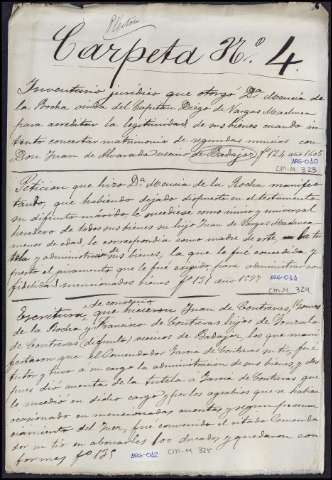 Carpeta N.º 4.
Inventario jurídico que otorgó Dª Mencía de
la Rocha viuda del Capitán Diego de Vargas Machuca
para acreditar la legitimidad de sus bienes cuando in-
tentó contratar matrimonio de segundas nuncias con
Don Juan de Alvarado vecino de Badajoz fº 128 año 1605
ARG-010
CM-M 323
Petición que hizo Dª Mencía de la Rocha manifes-
tando, que habiendo dejado dispuesto en el testamento
su difunto marido, le sucediese como único y universal
heredero de todos sus bienes su hijo Juan de Vargas Machuca
menor de edad, le correspondía como madre de este, la tu-
tela y administración de sus bienes, la que le fué concedida y
prestó el juramento que le fué exigido para administrar con
fidelidad mencionados bienes fº 131 año 1597
ARG-011
CM-M 324
de concordia
Escritura que hicieron Juan de Contreras, Gomez
de la Rocha y Francisco de Contreras hijos de Gonzalo
de Contreras (difunto) menores de Badajoz, los que mani-
festaron que el Comendador García de Contreras su tío, fué
tutor y tuvo a su cargo la administración de sus bienes y des-
pues dió cuenta de la tutela a García de Contreras que
le sucedió en dicho cargo y por los agravios que se habían
ocasionado en mencionadas cuentas y según pronun-
ciamiento del Juez, fué convenido el citado Comenda-
dor su tío en abonarles 100 ducados y quedaron con-
formes fº 135
ARG-012
CM-M 325